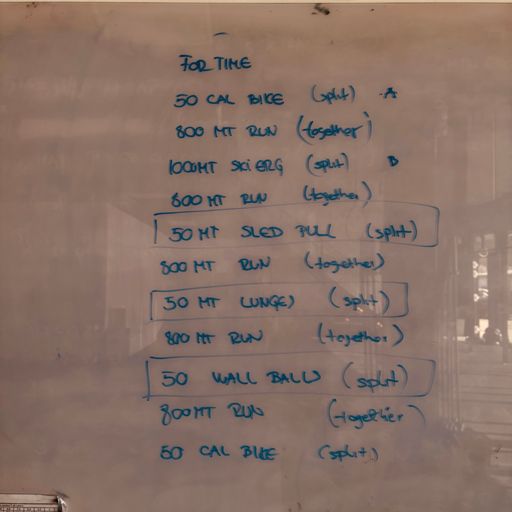 FOR TIME
50 CAL BIKE (split) A
800 MT RUN (together)
1000MT SKI ERG (split) B
800 MT RUN (together)
50 MT SLED PULL (split)
800 MT RUN (together)
50 MT LUNGES (split)
800 MT RUN (together)
50 WALL BALLS (split)
800MT RUN (together)
50 CAL BIKE (split)